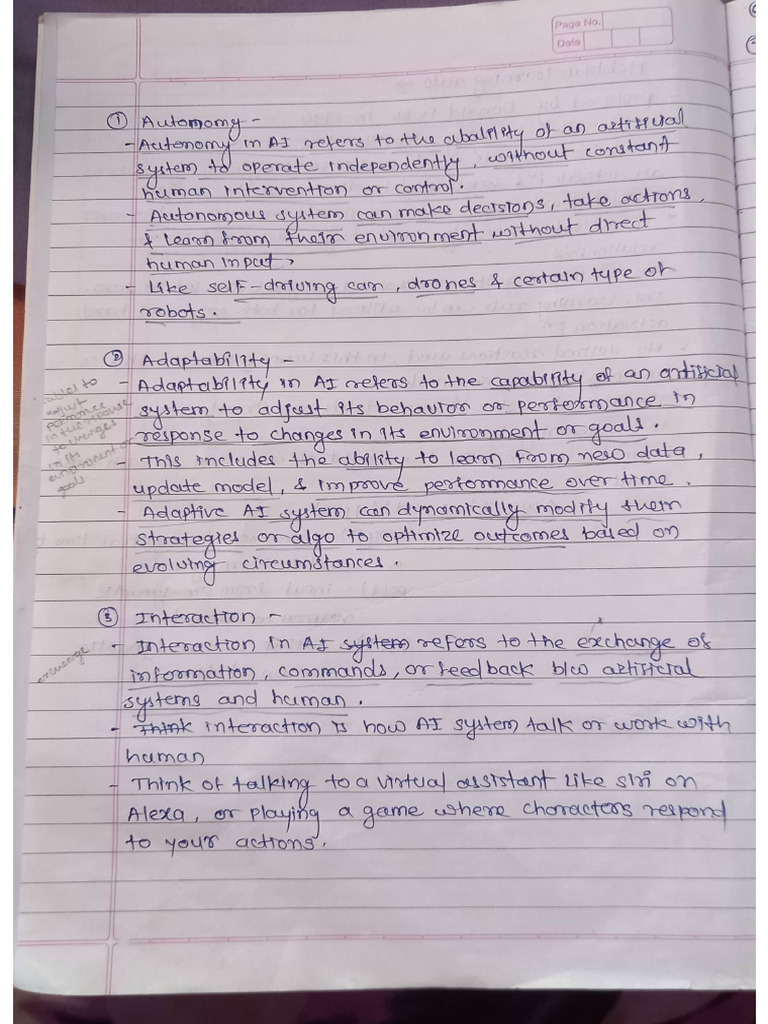 Page No.
Date
① Autonomy -
- Autonomy in AI refers to the abalility of an artificial
system to operate independently, without constant
human intervention or control.
- Autonomous system can make decisions, take actions,
& learn from their environment without direct
human input.
- Like self-driving car, drones & certain type of
robots.
② Adaptability -
- Adaptability in AI refers to the capability of an artificial
system to adjust its behavior or performance in
response to changes in its environment or goals.
- This includes the ability to learn from new data,
update model, & improve performance over time.
- Adaptive AI system can dynamically modify them
strategies or algo to optimize outcomes based on
evolving circumstances.
to
adjust
in the
in its
environment or
goals
③ Interaction -
- Interaction in AI system refers to the exchange of
information, commands, or feedback b/w artificial
systems and human.
- Think interaction is how AI system talk or work with
human
- Think of talking to a virtual assistant like siri on
Alexa, or playing a game where characters respond
to your actions.